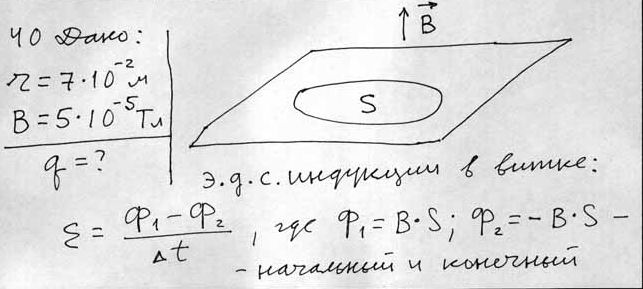 ЧО Дано:
r = 7·10⁻² м
B = 5·10⁻⁵ Тл
q = ?
B⃗
S
э.д.с. индукции в витке:
ℰ = (Φ₁ − Φ₂) / Δt, где Φ₁ = B·S; Φ₂ = −B·S −
− начальный и конечный